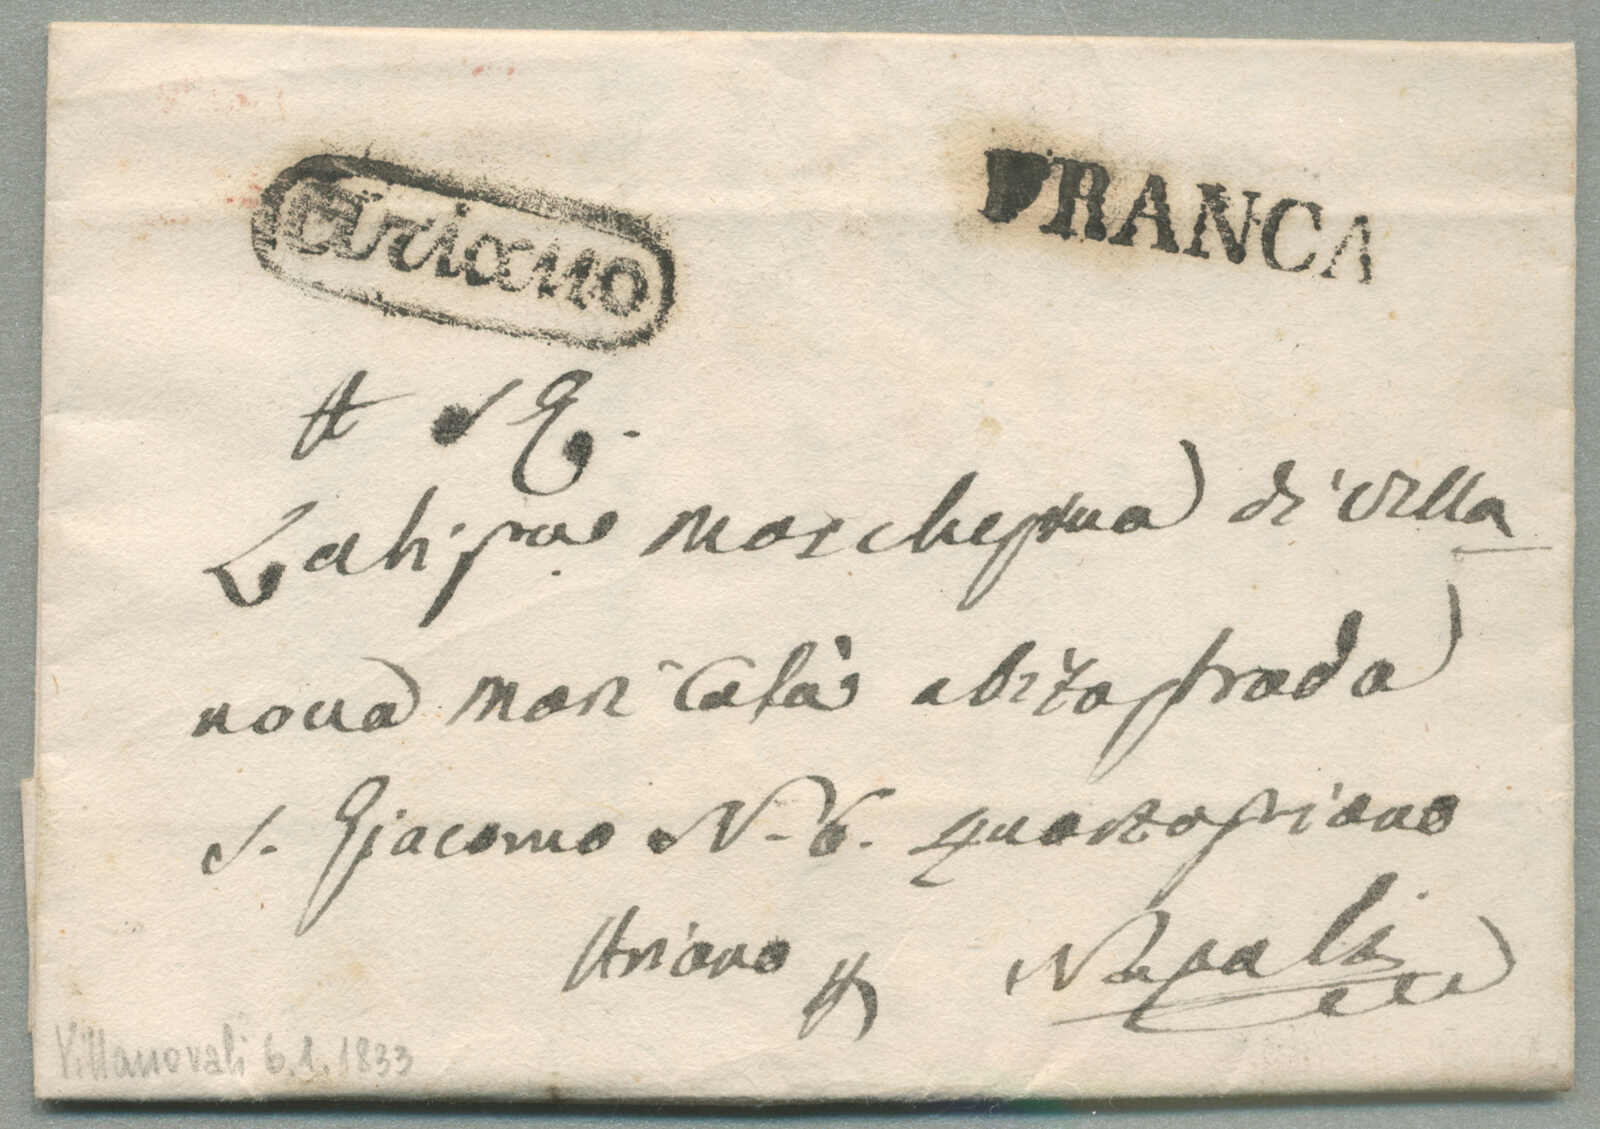 Ariano
FRANCA
A S E.
La Sig.ra Marchesina di Villa
nova Mari Calà abita strada
S. Giacomo N. 6. quarto piano
Ariano p Napoli
Villanova 6.1.1833